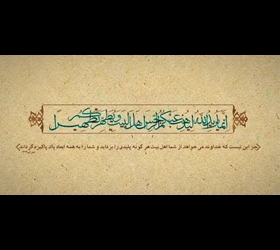 إنما يريد الله ليذهب عنكم الرجس أهل البيت و يطهركم تطهيرا
«جز این نیست که خداوند می خواهد از شما اهل بیت هر گونه پلیدی را بزداید و شما را به همه ابعاد پاک پاکیزه گرداند»